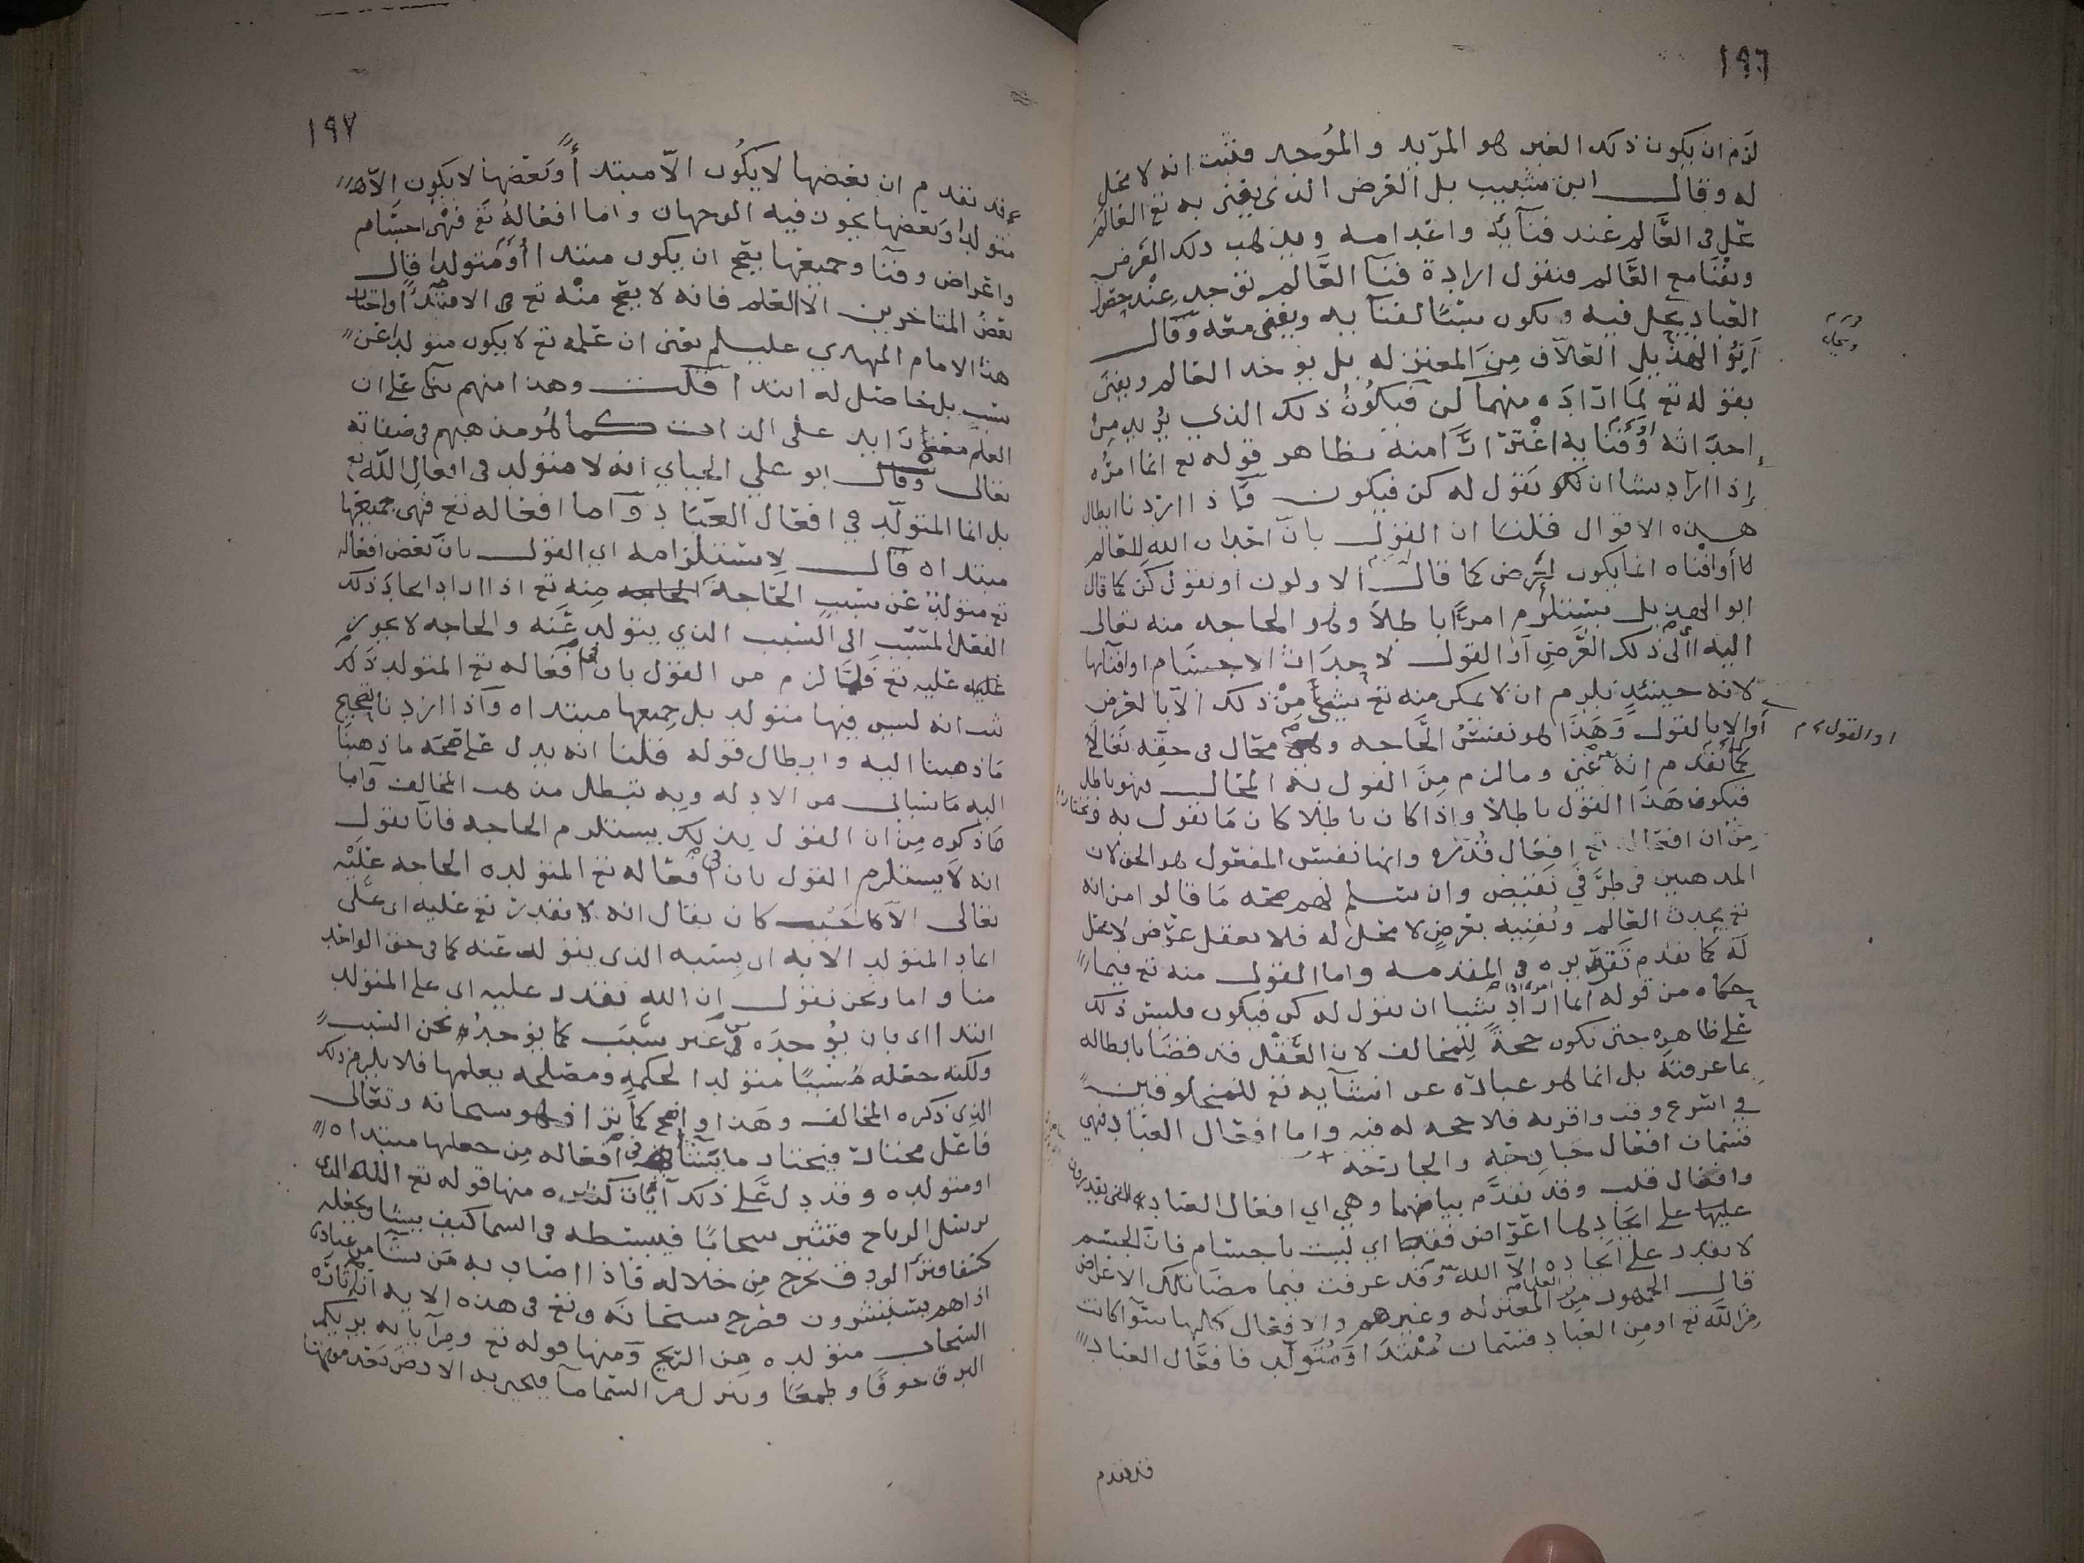 ١٩٦
لزم ان يكون ذلك الغير هو المريد والموجد فثبت انه لا محل
له وقال ابن شبيب بل الغرض الذي يفنى به تع العالم
يحل في العالم عند فنائه واعدامه ويذهب ذلك الغرض
ويفنا مع العالم فنقول ارادة فنا العالم توجد عند حضور
العباد يحل فيه ويكون سببًا لفنائه ويفنى معه وقال
ابو الهذيل العلاف من المعتزله بل يوجد العالم ويفنى
بقوله تع لما اراده منهما كن فيكون ذلك الذي يريد من
احداثه او فنائه اغترارًا منه بظاهر قوله تع انما امره
اذا اراد شيا ان يقول له كن فيكون فاذا اردنا ابطال
هذه الاقوال فقلنا ان القول بان احداث الله للعالم
او افناه انما يكون لغرض كما قال الاولون او بقول كن كما قال
ابو الهذيل يستلزم امرًا باطلًا وهو الحاجه منه تعالى
اليه اي الى ذلك الغرض او القول لاحداث الاجسام او افنائها
لانه حينئذ يلزم ان لا يمكن منه تع شيئ من ذلك الا بالغرض
او الا بالقول وهذا هو نفس الحاجه وهي محال في حقه تعالى
او القول م
كما تقدم انه غني وما لزم من القول به المحال فهو باطل
فيكون هذا القول باطلًا واذا كان باطلا كان ما نقول به ونختاره
من ان افعاله تع افعال قدره وانها نفس المفعول هو الحق لان
المذهبين في طرفي نقيض وان سلم لهم صحه ما قالوا من انه
تع يحدث العالم ويفنيه بغرض لا محل له فلا يعقل عرض لا محل
له كما تقدم تقريره في المقدمه واما القول منه تع فيما
حكاه من قوله انما امره اذا اراد شيا ان يقول له كن فيكون فليس ذلك
على ظاهره حتى يكون حجة للمخالف لان العقل قد قضا بابطاله
بما عرفته بل انما هو عبارة عن انشائه تع للمخلوقين
في اسرع وقت واقربه فلا حجه له فيه واما افعال العباد فهي
قسمان افعال جارحه والجارحه
وافعال قلب وقد تقدم بيانها وهي اي افعال العباد التي يقدرون
عليها على ايجادها اعراض فقط اي ليست باجسام فان الجسم
لا يقدر على ايجاده الا الله وقد عرفت فيما مضا تلك الاعراض
قال الجمهور من العلما من المعتزله وغيرهم والافعال كلها سوآ كانت
من الله تع او من العباد قسمان مبتدا ومتولد فافعال العباد
قد تقدم
١٩٧
قد تقدم ان بعضها لا يكون الا مبتدأ وبعضها لا يكون الا
متولدا وبعضها يجوز فيه الوجهان واما افعاله تع فهي اجسام
واعراض وفنا وجميعها يصح ان يكون مبتدا او متولدا قال
بعض المتاخرين الا العلم فانه لا يصح منه تع الا مبتدأ واختار
هذا الامام المهدي عليلم يعني ان علمه تع لا يكون متولدا عن
سبب بل حاصل له ابتدا قلت وهذا منهم بنى على ان
العلم معنى زايد على الذات كما هو مذهبهم في صفاته
تعالى وقال ابو علي الجباي انه لا متولد في افعال الله تع
بل انما المتولد في افعال العباد واما افعاله تع فهي جميعها
مبتداه قال لاستلزامه اي القول بان بعض افعاله
تع متولد عن سبب الحاجة منه تع اذا اراد ايجاد ذلك
الفعل المسبب الى السبب الذي يتولد عنه والحاجه لا يجوز
عليه تع فلما لزم من القول بان في افعاله تع المتولد ذلك
ثبت انه ليس فيها متولد بل جميعها مبتداه واذا اردنا تصحيح
ما ذهبنا اليه وابطال قوله قلنا انه يدل على صحه ما ذهبنا
اليه ما سياتي من الادله وبه تبطل مذهب المخالف واما
ما ذكره من ان القول بذلك يستلزم الحاجه فانا نقول
انه لا يستلزم القول بان في افعاله تع المتولده الحاجه عليه
تعالى الا كان يقال انه لا يقدر تع عليه اي على
ايجاد المتولد الا به اي بسببه الذي يتولد عنه كما في حق الواحد
منا واما ونحن نقول ان الله يقدر عليه اي على المتولد
ابتدا اي بان يوجده من غير سبب كما يوجده نحن السبب
ولكنه جعله مسببًا متولدا لحكمه ومصلحه يعلمها فلا يلزم ذلك
الذي ذكره المخالف وهذا واضح كما ترا فهو سبحانه وتعالى
فاعل مختار فيختار ما يشا في افعاله من جعلها مبتداه
او متولده وقد دل على ذلك آيات كثيره منها قوله تع الله الذي
يرسل الرياح فتثير سحابًا فيبسطه في السما كيف يشا ويجعله
كسفا فترى الودق يخرج من خلاله فاذا اصاب به من يشا من عباده
اذا هم يستبشرون فصرح سبحانه وتع في هذه الايه ان اثارة
السحاب متولده من الريح ومنها قوله تع ومن آياته يريكم
البرق خوفًا وطمعًا وينزل من السما مآ فيحيي به الارض بعد موتها